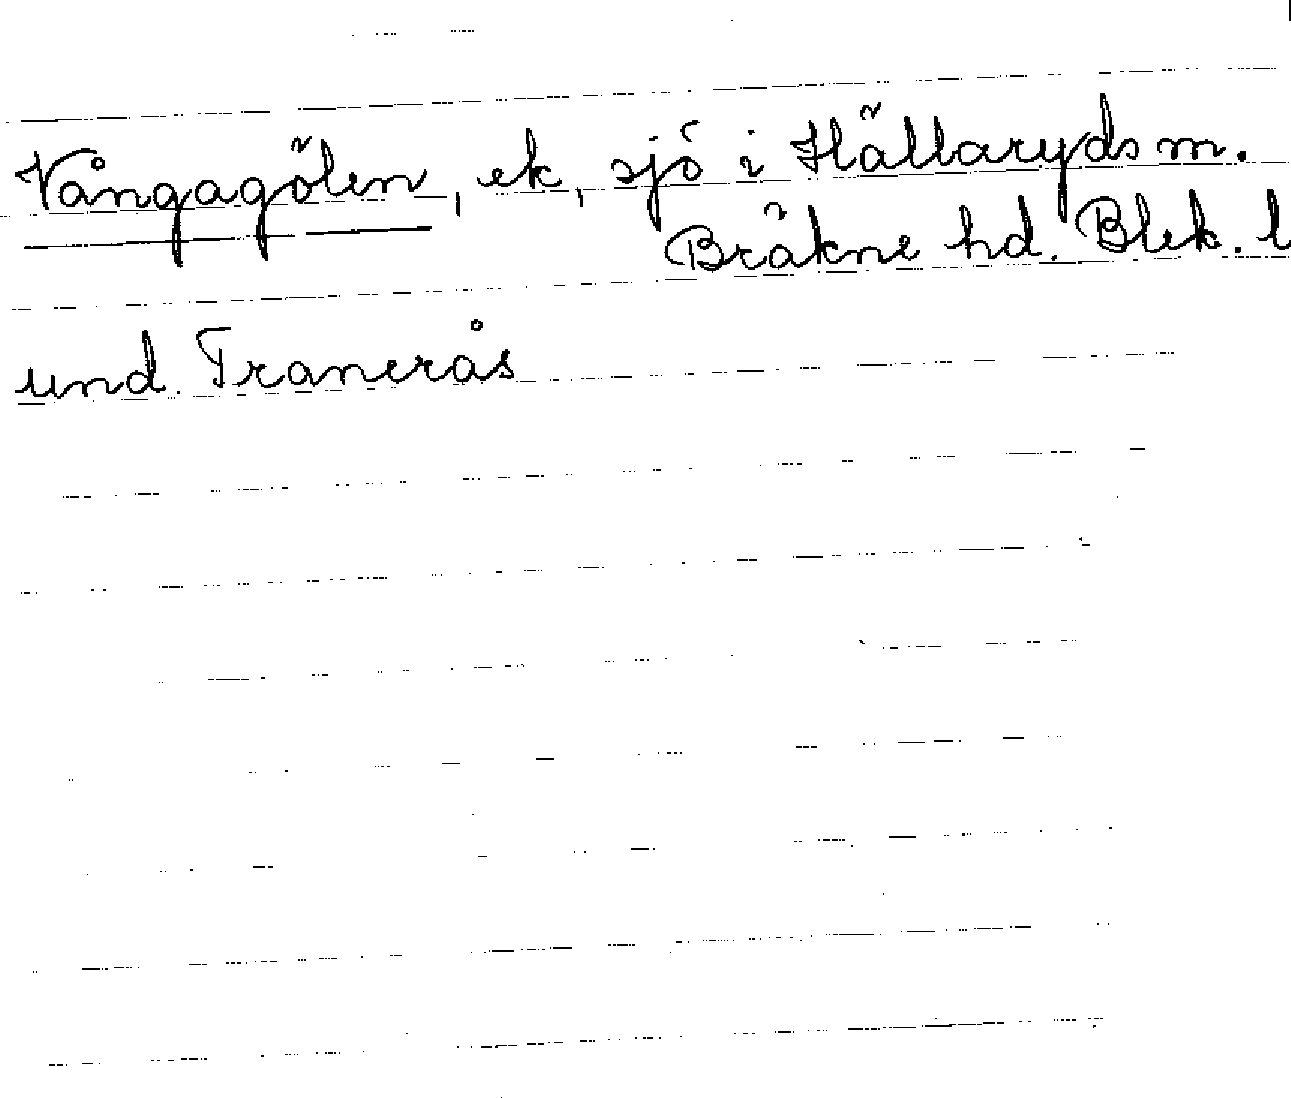 Vångagölen, ek, sjö i Hällaryds m.
Bräkne hd. Blek. l
und. Tranerås